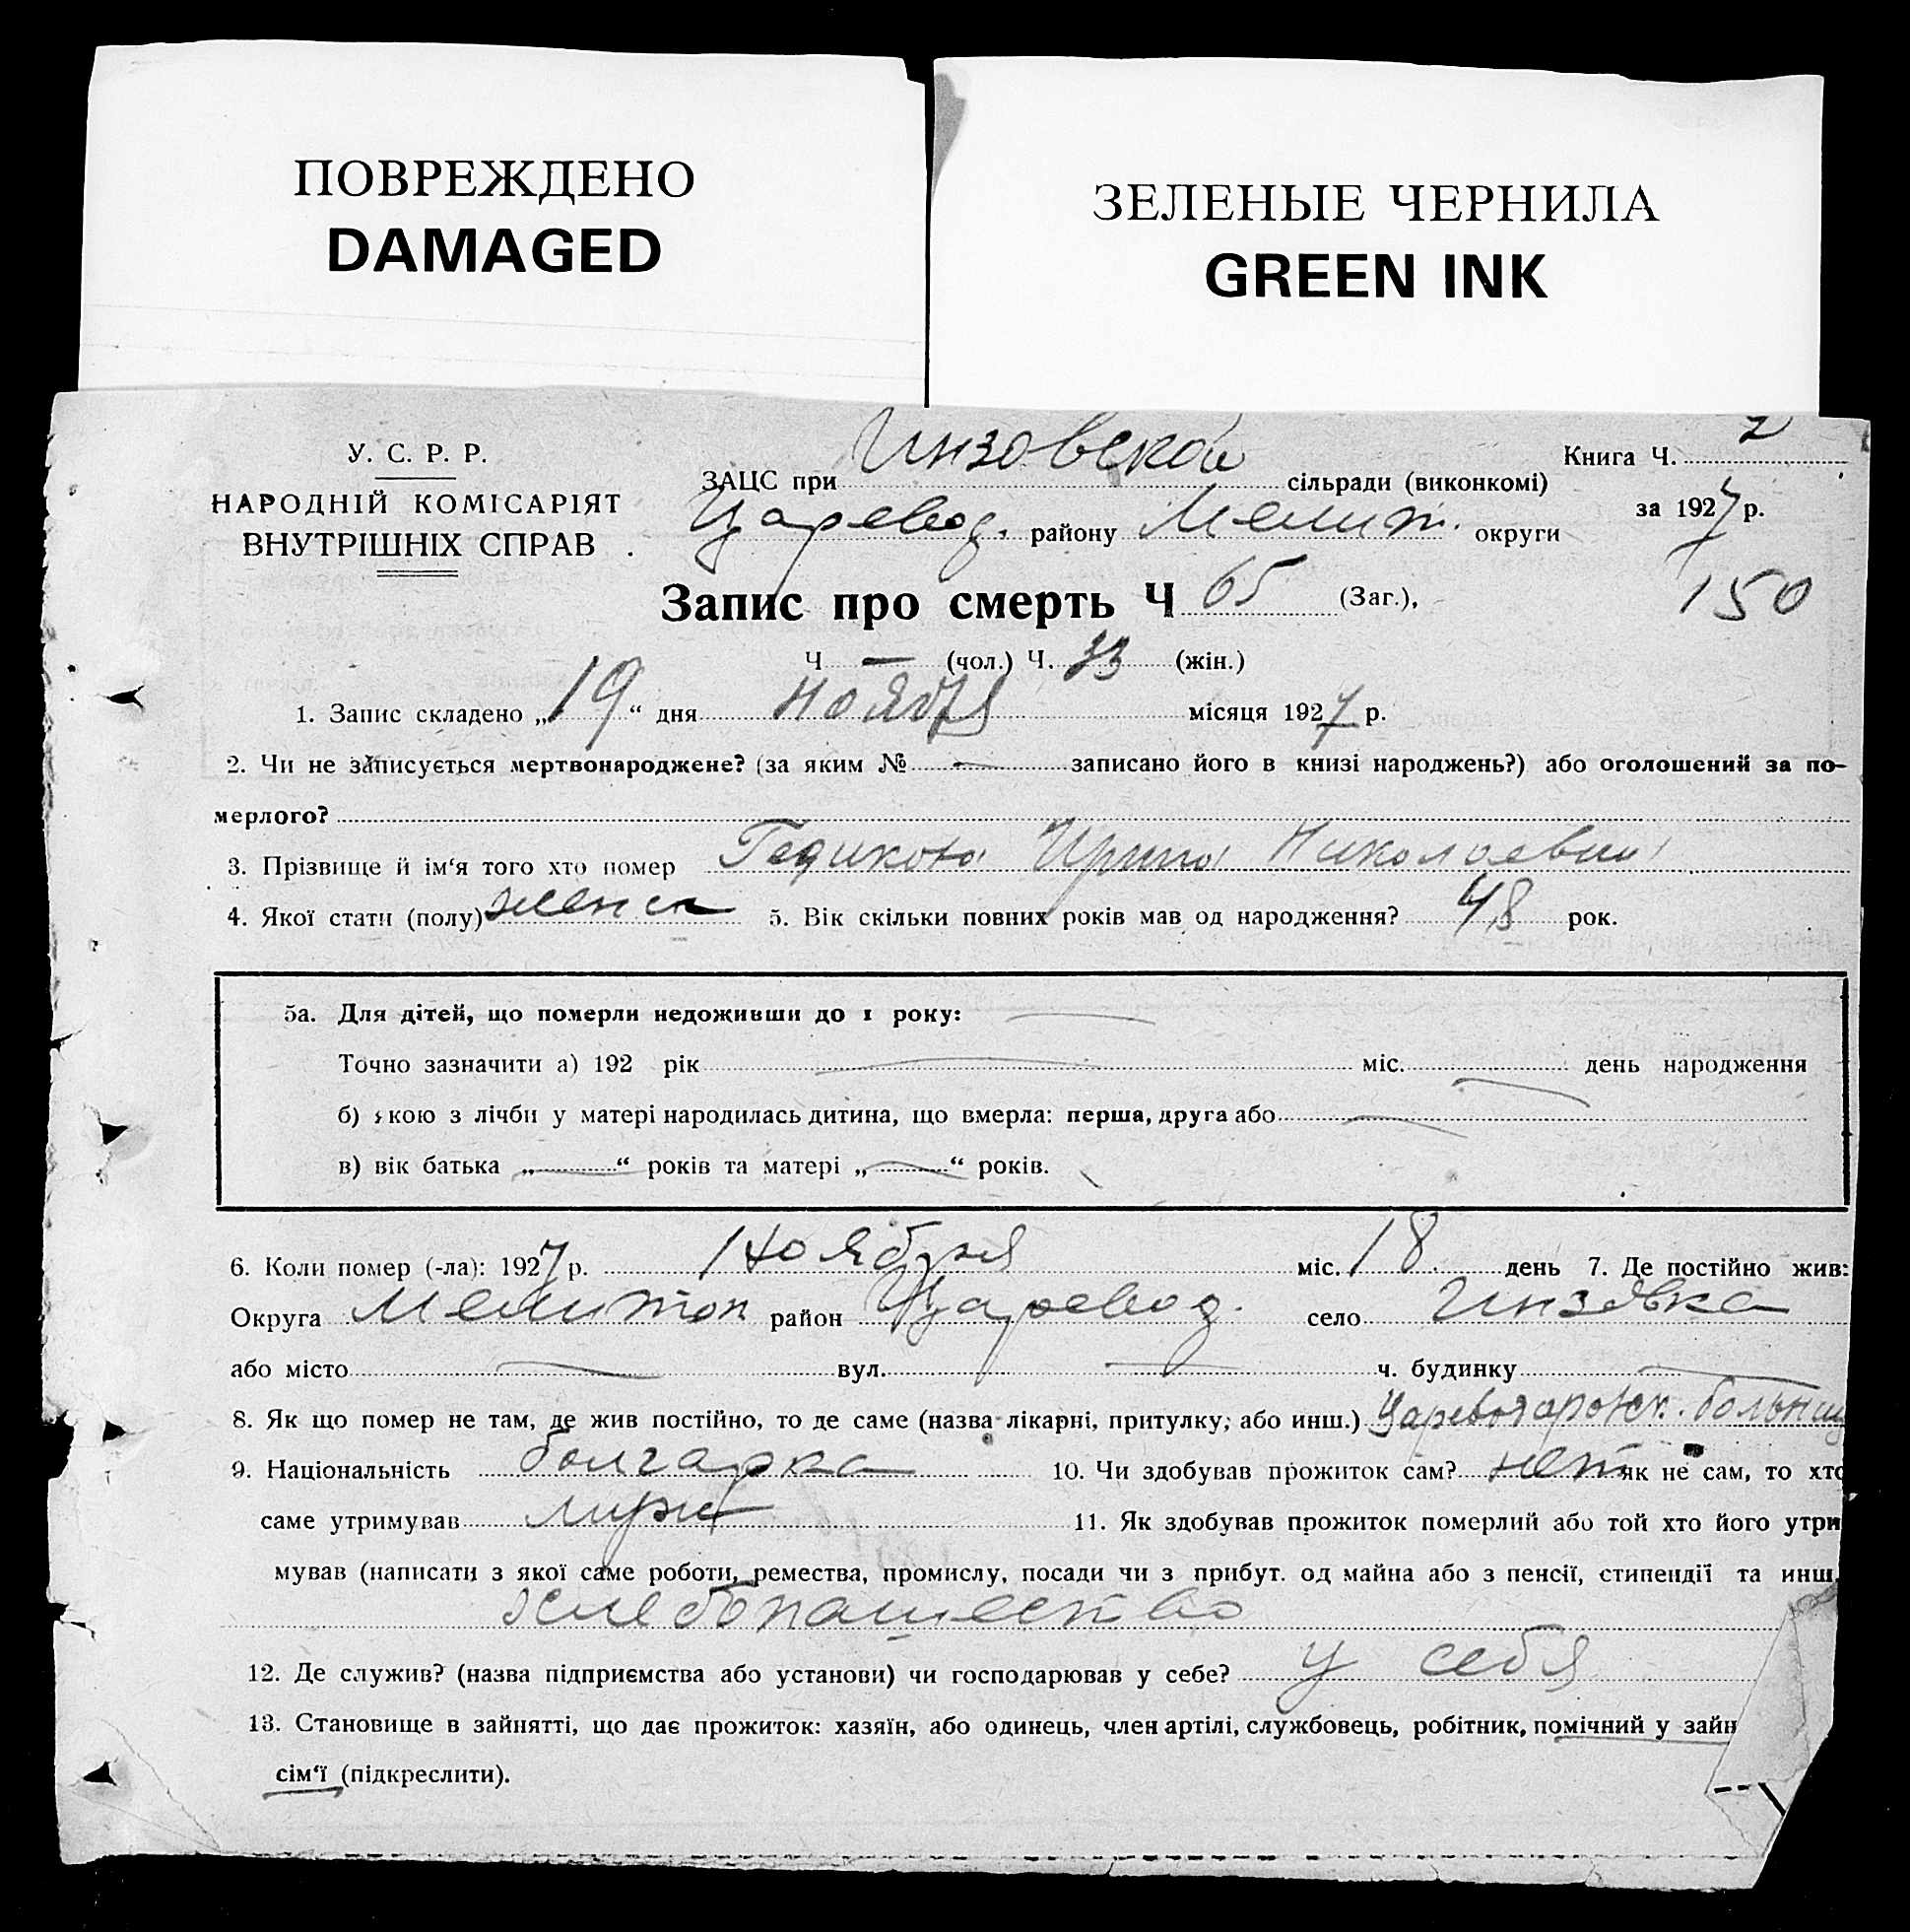 ПОВРЕЖДЕНО
DAMAGED
ЗЕЛЕНЫЕ ЧЕРНИЛА
GREEN INK
У. С. Р. Р.
НАРОДНІЙ КОМІСАРІЯТ
ВНУТРІШНІХ СПРАВ
ЗАЦС при Инзовской сільради (виконкомі)
Царевод. району Мелит. округи
Книга Ч. 2
за 1927 р.
150
Запис про смерть Ч 65 (Заг.),
Ч — (чол.) Ч. 33 (жін.)
1. Запис складено „19“ дня Ноября місяця 1927 р.
2. Чи не записується мертвонароджене? (за яким № — записано його в книзі народжень?) або оголошений за по-
мерлого?
3. Прізвище й ім‘я того хто помер Гедикова Ирина Николаевна
4. Якої стати (полу) женск 5. Вік скільки повних років мав од народження? 48 рок.
5а. Для дітей, що померли недоживши до 1 року: —
Точно зазначити а) 192 рік — міс. — день народження
б) якою з лічби у матері народилась дитина, що вмерла: перша, друга або —
в) вік батька „—“ років та матері „—“ років.
6. Коли помер (-ла): 1927 р. Ноября міс. 18 день 7. Де постійно жив:
Округа Мелитоп район Царевод. село Инзовка
або місто — вул. — ч. будинку —
8. Як що помер не там, де жив постійно, то де саме (назва лікарні, притулку, або инш.) больниц
9. Національність болгарка 10. Чи здобував прожиток сам? нет як не сам, то хто
саме утримував муж 11. Як здобував прожиток померлий або той хто його утри
мував (написати з якої саме роботи, ремества, промислу, посади чи з прибут. од майна або з пенсії, стипендії та инш.
хлебопашество
12. Де служив? (назва підприємства або установи) чи господарював у себе? у себя
13. Становище в зайнятті, що дає прожиток: хазяїн, або одинець, член артілі, службовець, робітник, помічний у зайн
сім‘ї (підкреслити).